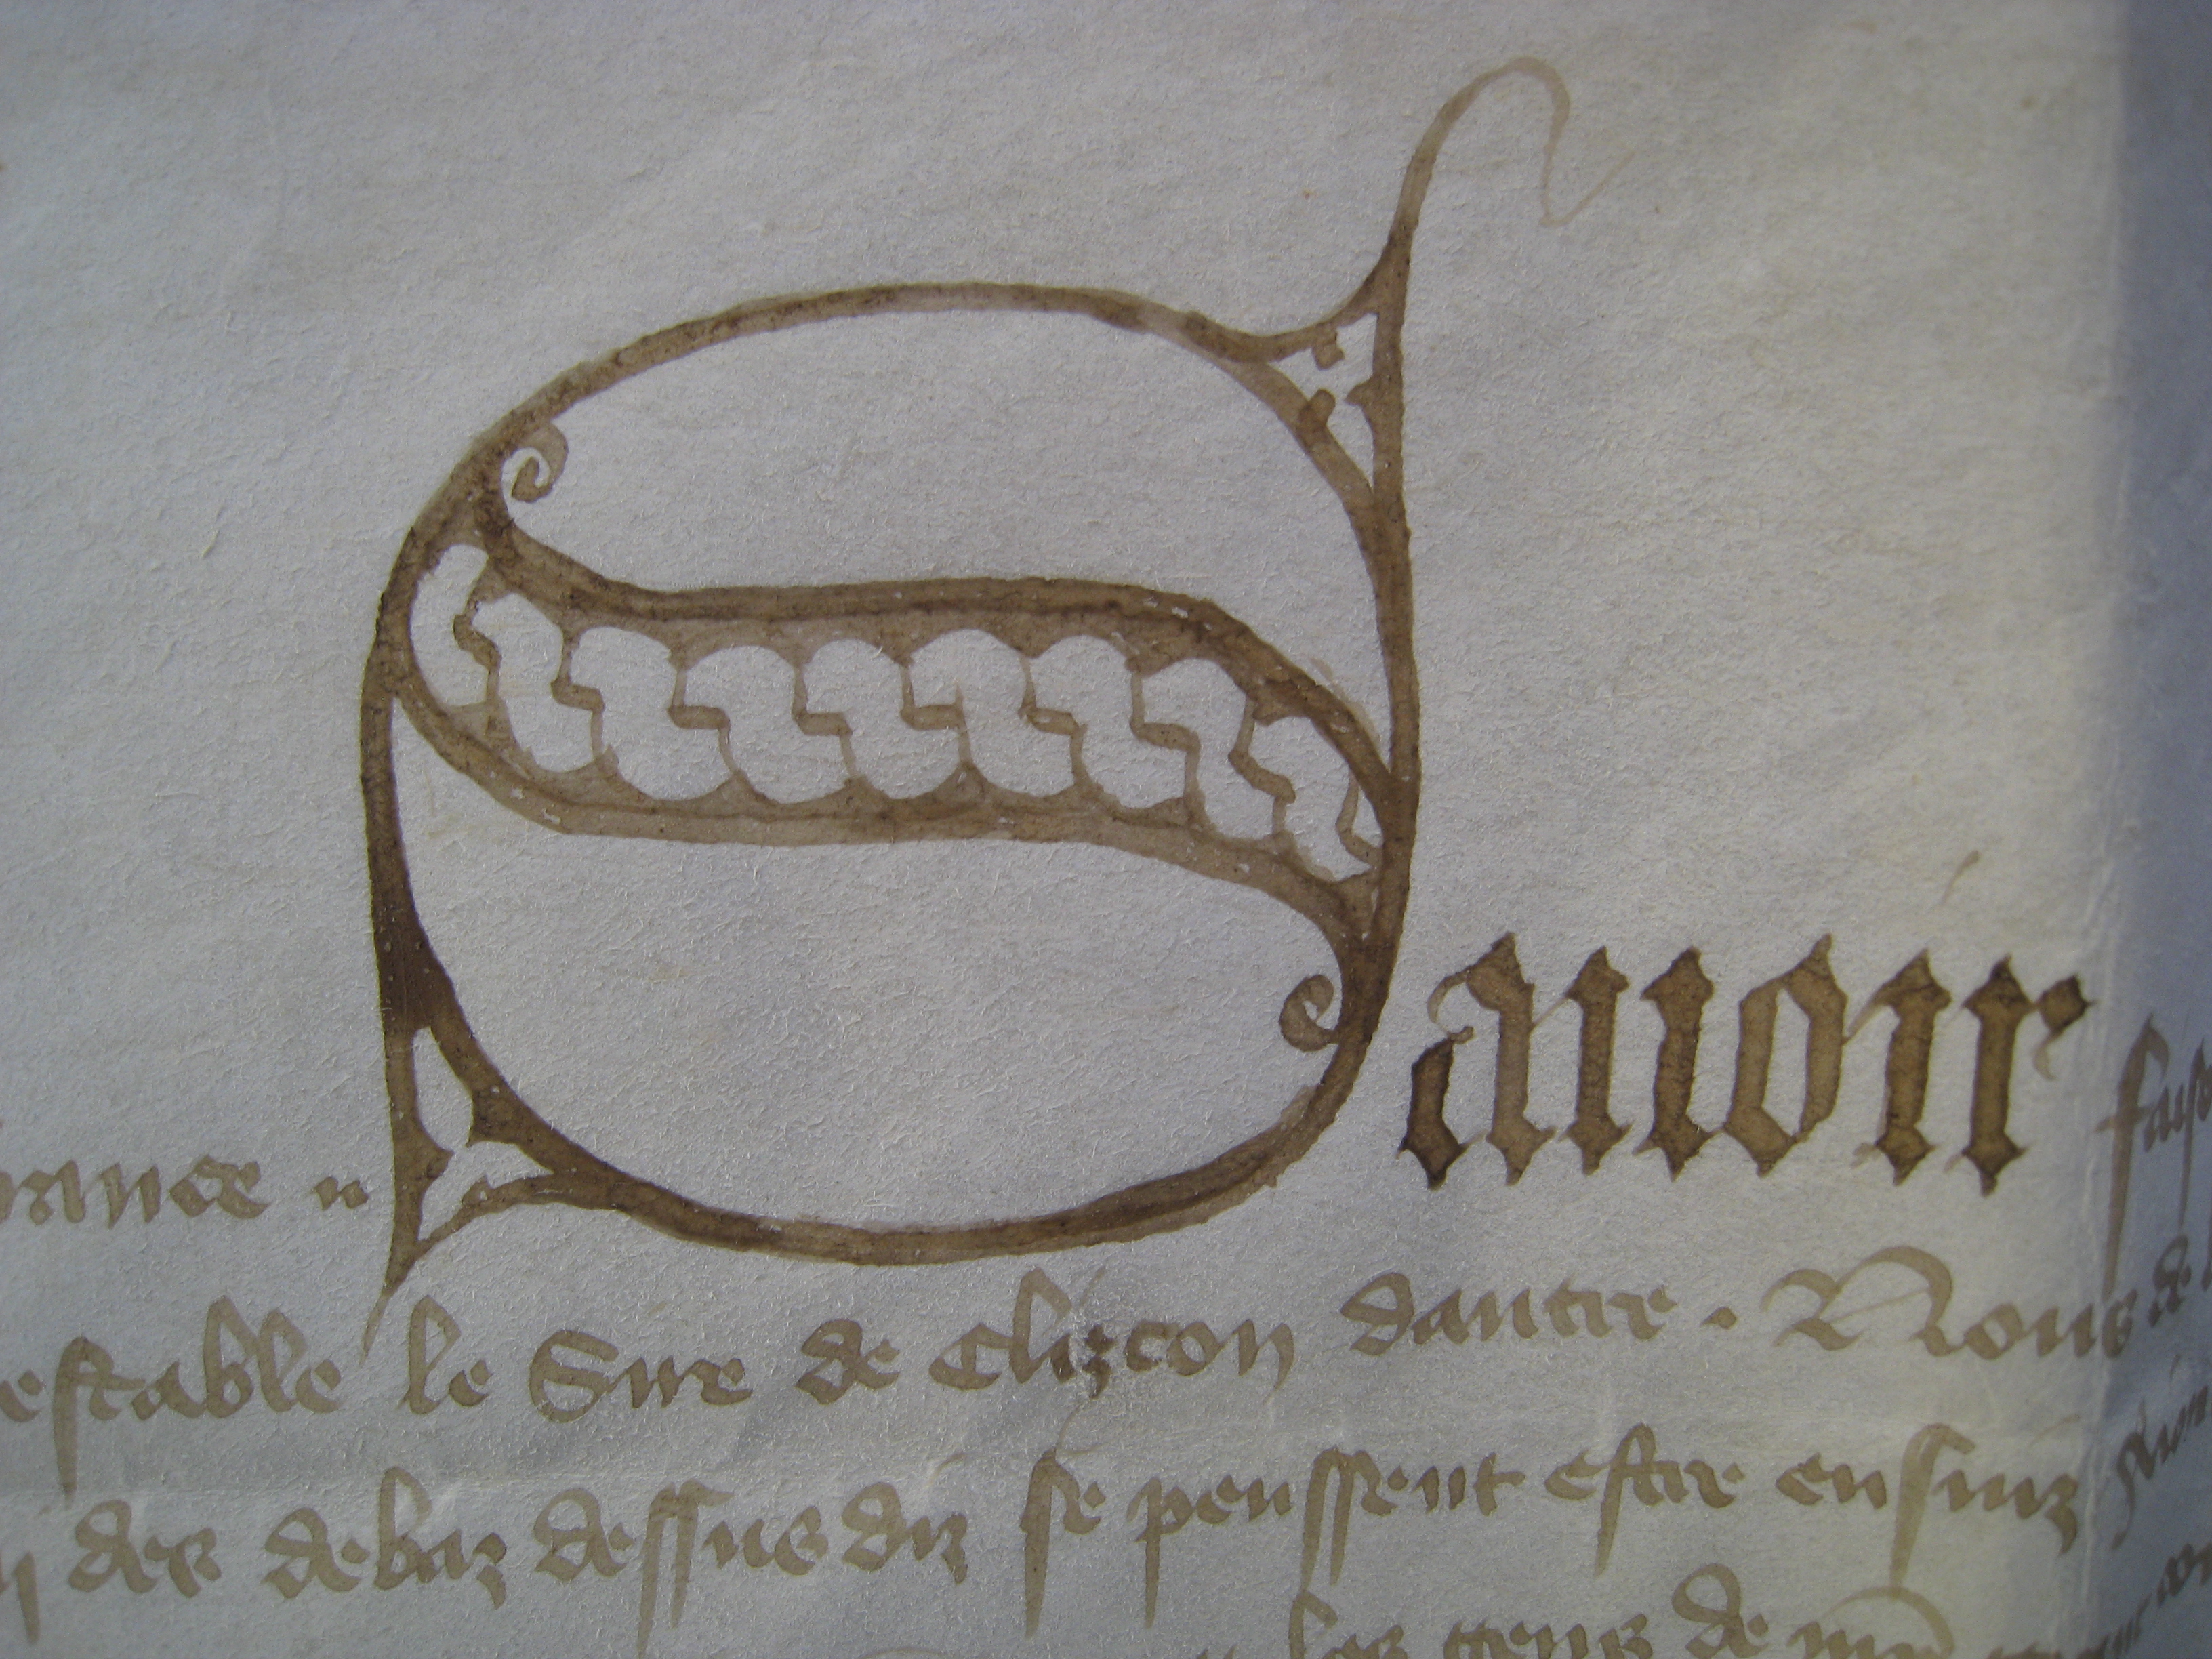 Sauoir
estable le Sire de Clizcon dautre . Nous de
des debaz dessus diz se peussent estre ensuiz
les gens de